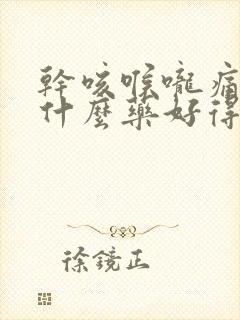 幹咳喉嚨痛
什麼藥好得
徐鏡正